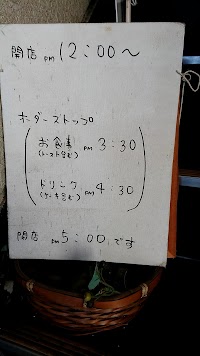 開店 PM 12:00〜
オーダーストップ
お食事 PM 3:30
(トースト含む)
ドリンク PM 4:30
(ケーキ含む)
閉店 PM 5:00です